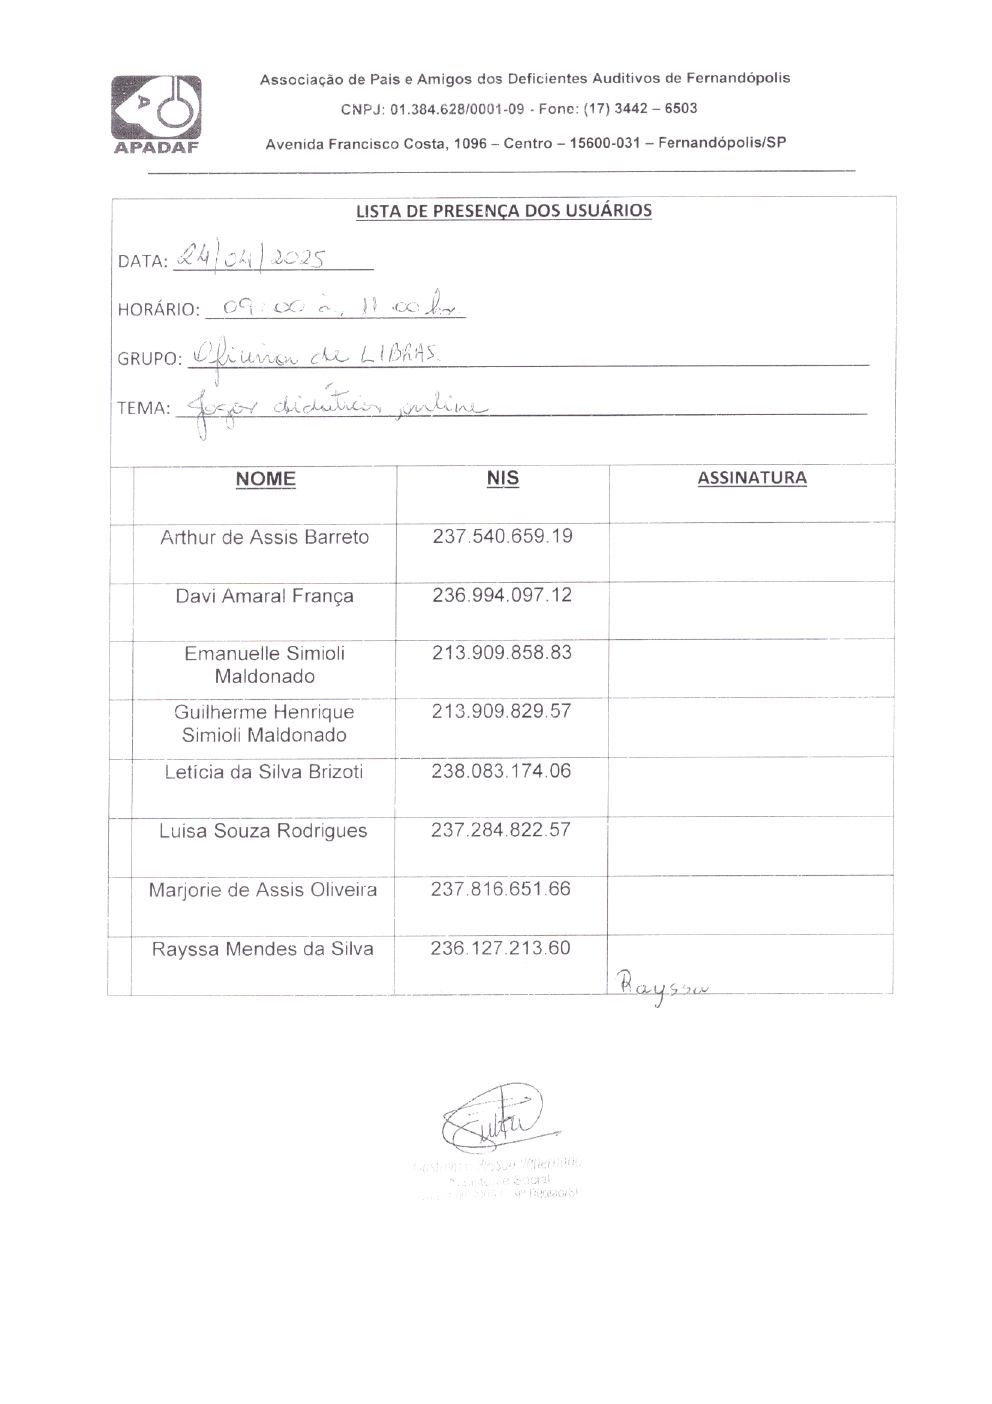 Associação de Pais e Amigos dos Deficientes Auditivos de Fernandópolis
CNPJ: 01.384.628/0001-09 - Fone: (17) 3442 – 6503
APADAF
Avenida Francisco Costa, 1096 – Centro – 15600-031 – Fernandópolis/SP
LISTA DE PRESENÇA DOS USUÁRIOS
DATA: 24/04/2025
HORÁRIO: 09:00 à, 11:00hr
GRUPO: Oficina de LIBRAS.
TEMA: Jogos didáticos online
NOME NIS ASSINATURA
Arthur de Assis Barreto 237.540.659.19
Davi Amaral França 236.994.097.12
Emanuelle Simioli 213.909.858.83
Maldonado
Guilherme Henrique 213.909.829.57
Simioli Maldonado
Letícia da Silva Brizoti 238.083.174.06
Luisa Souza Rodrigues 237.284.822.57
Marjorie de Assis Oliveira 237.816.651.66
Rayssa Mendes da Silva 236.127.213.60
Rayssa